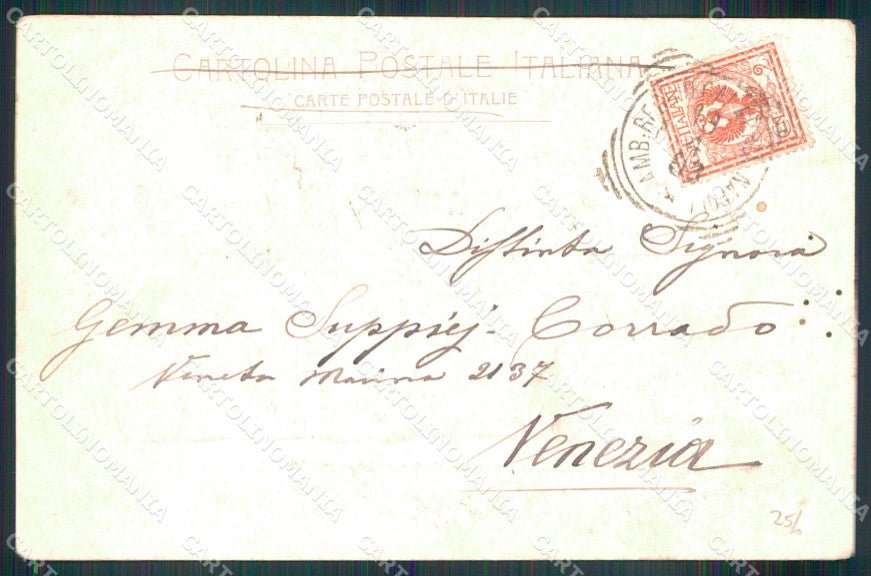 CARTOLINA POSTALE ITALIANA
CARTE POSTALE D'ITALIE
AMB.
Distinta Signora
Gemma Suppiej-Corrado
Veneta Marina 2137
Venezia
25/
CARTOLINOMANIA